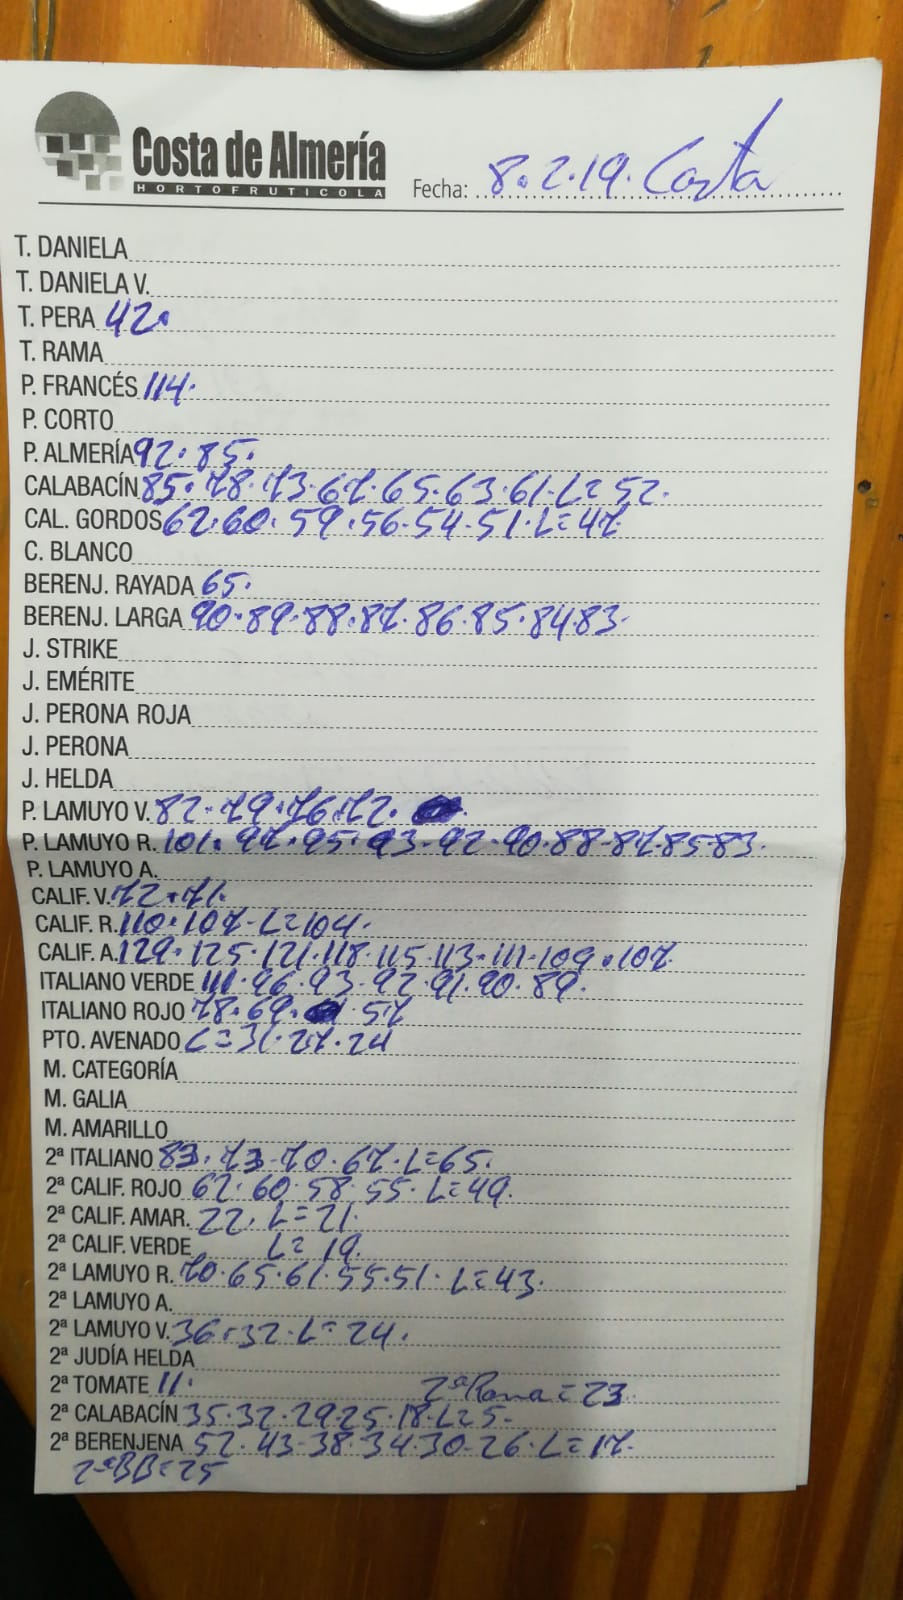 Costa de Almería
HORTOFRUTICOLA
Fecha: 8.2.19. Costa
T. DANIELA
T. DANIELA V.
T. PERA 42.
T. RAMA
P. FRANCÉS 114.
P. CORTO
P. ALMERÍA 92.85.
CALABACÍN 85.78.73.67.65.63.61.L=52.
CAL. GORDOS 62.60.59.56.54.51.L=47
C. BLANCO
BERENJ. RAYADA 65.
BERENJ. LARGA 90.89.88.87.86.85.84.83.
J. STRIKE
J. EMÉRITE
J. PERONA ROJA
J. PERONA
J. HELDA
P. LAMUYO V. 82.79.76.72.
P. LAMUYO R. 101.97.95.93-92.90.88-87.85.83.
P. LAMUYO A.
CALIF. V. 72.71.
CALIF. R. 110.107-L=104.
CALIF. A. 129.125.121.118.115.113.111.109.107.
ITALIANO VERDE 111.96.93.92.91.90.89.
ITALIANO ROJO 78.69. .57
PTO. AVENADO L=31.27.24
M. CATEGORÍA
M. GALIA
M. AMARILLO
2ª ITALIANO 83.73-70.67.L=65.
2ª CALIF. ROJO 62.60.58.55.L=49.
2ª CALIF. AMAR. 22.L=21.
2ª CALIF. VERDE L=19.
2ª LAMUYO R. 70.65.61.55.51.L=43.
2ª LAMUYO A.
2ª LAMUYO V. 36.32.L=24.
2ª JUDÍA HELDA
2ª TOMATE 11. 2ªRama=23
2ª CALABACÍN 35.32.29.25.18.L=5-
2ª BERENJENA 52.43-38.34.30-26.L=17.
2ªBB=25